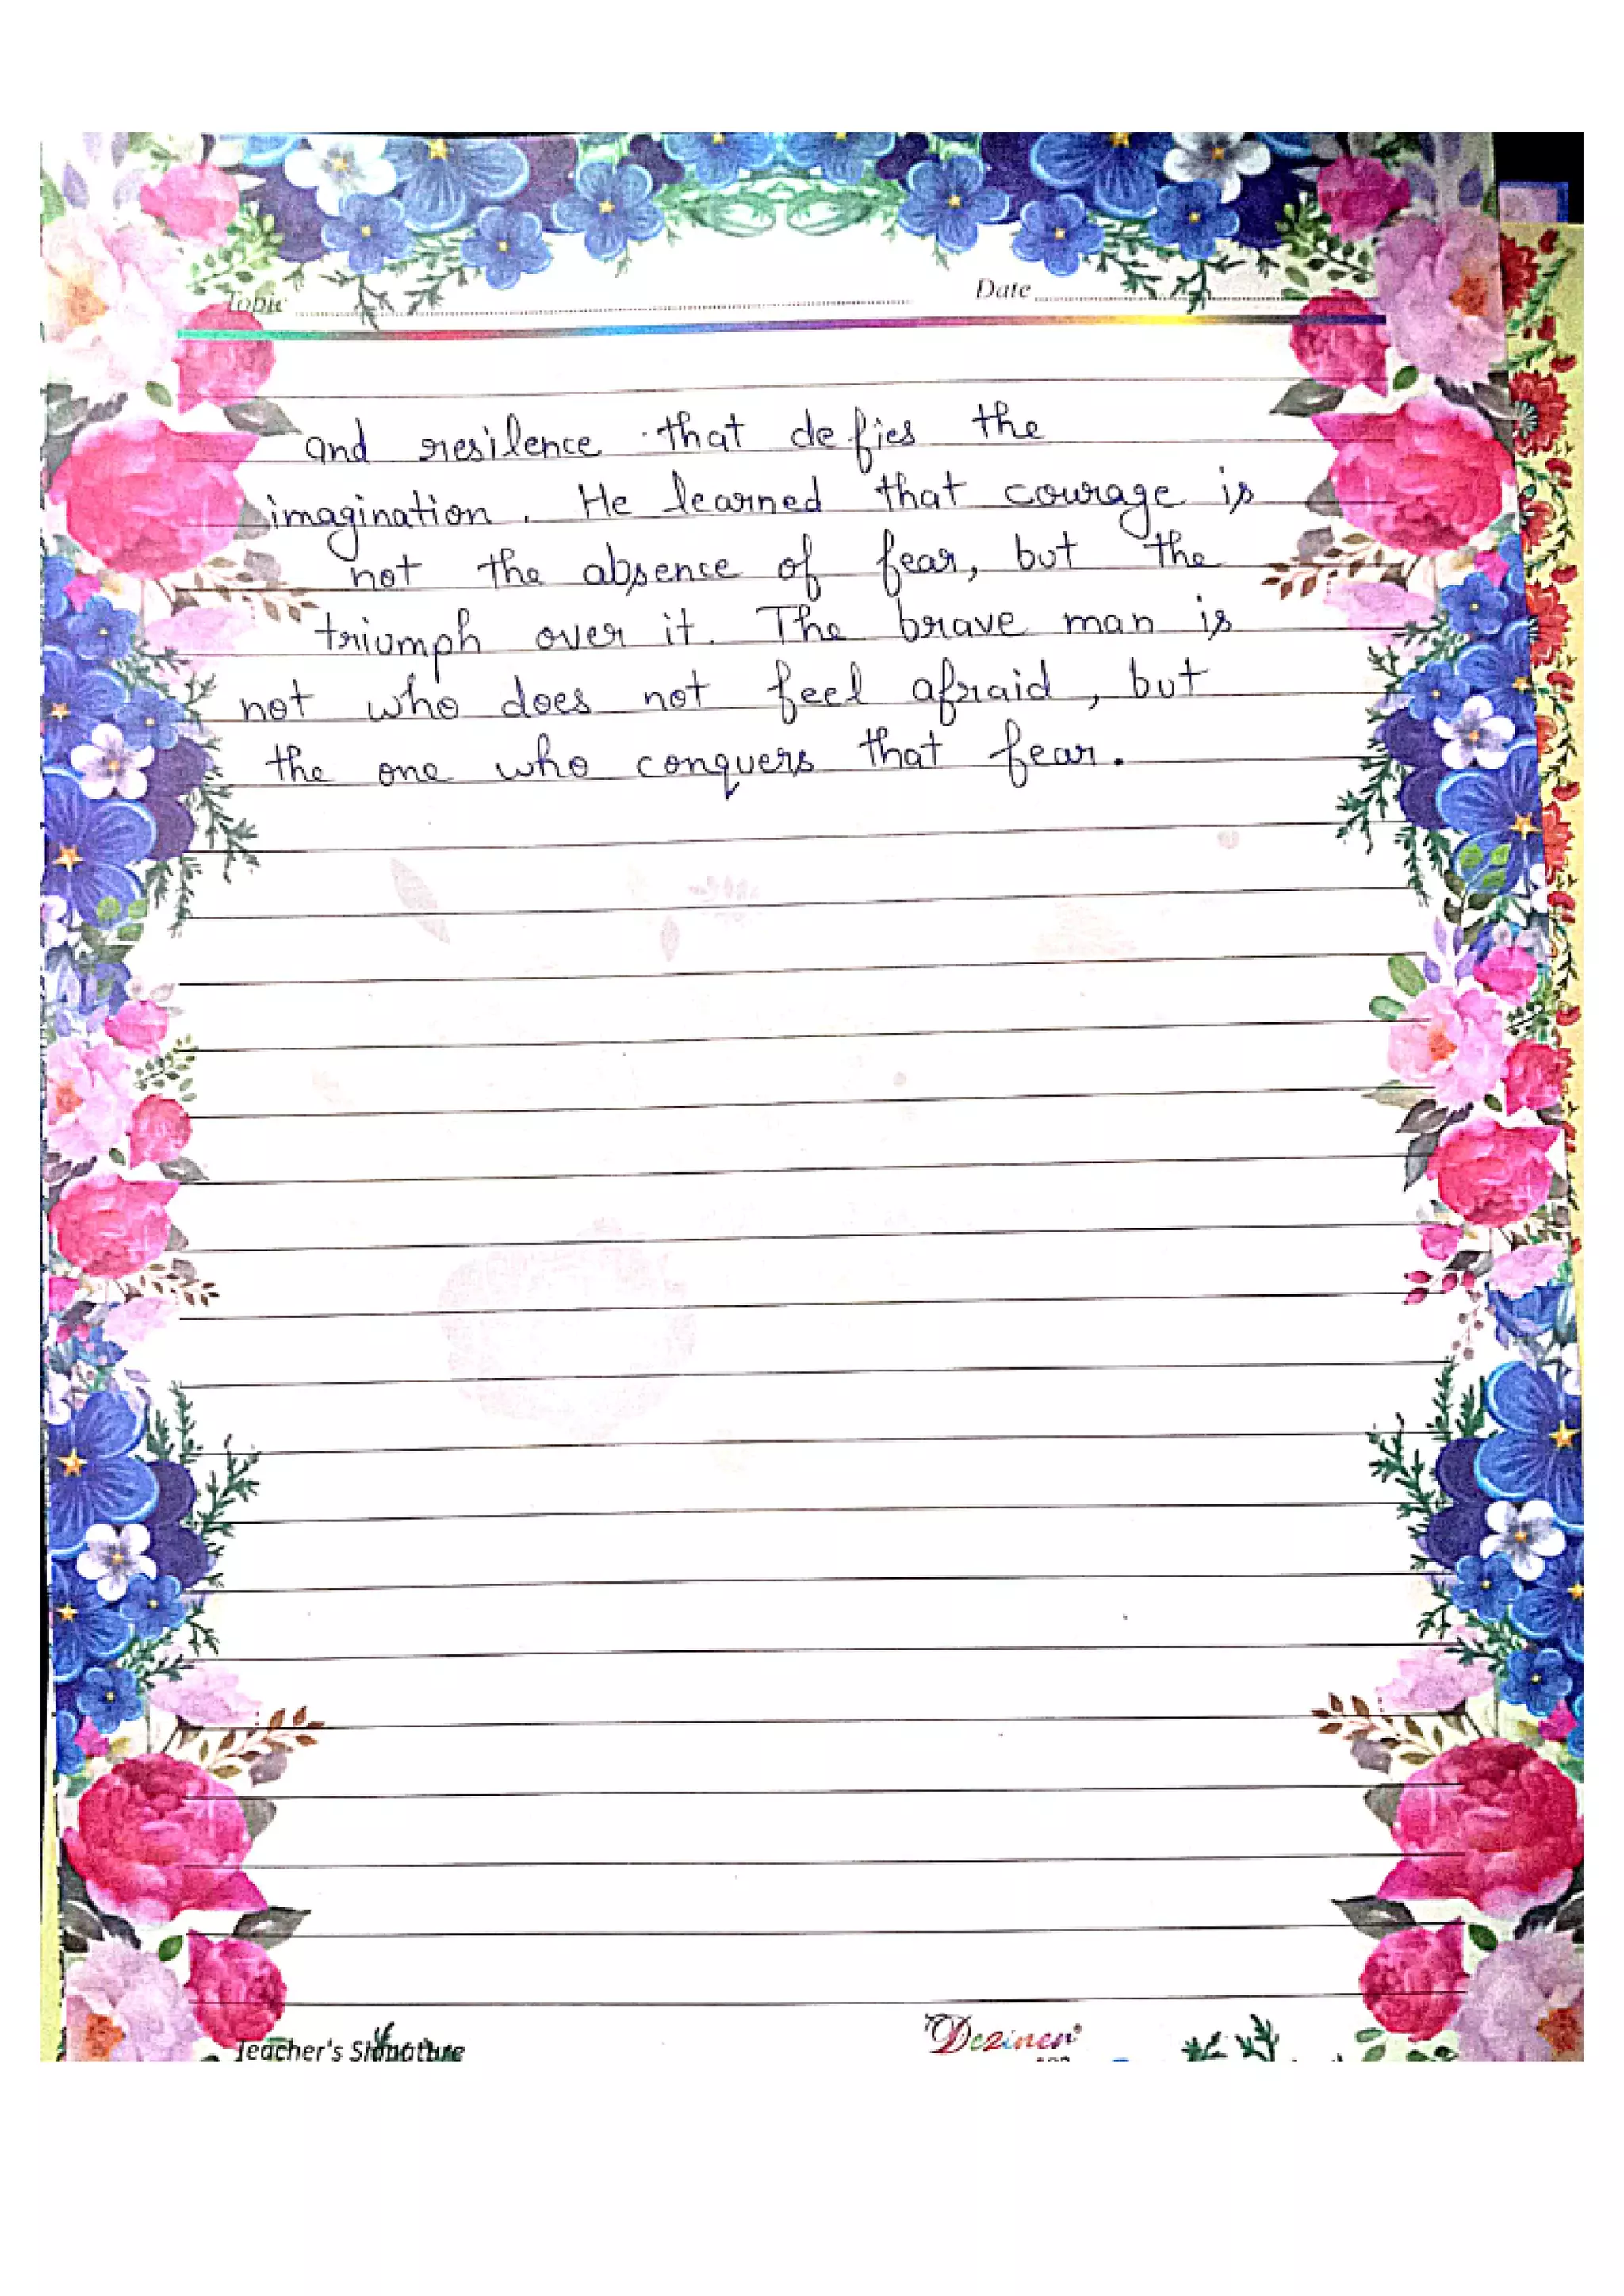 Topic
Date
and resilence that defies the
imagination. He learned that courage is
not the absence of fear, but the
triumph over it. The brave man is
not who does not feel afraid, but
the one who conquers that fear.
Teacher's Signature
Deziner